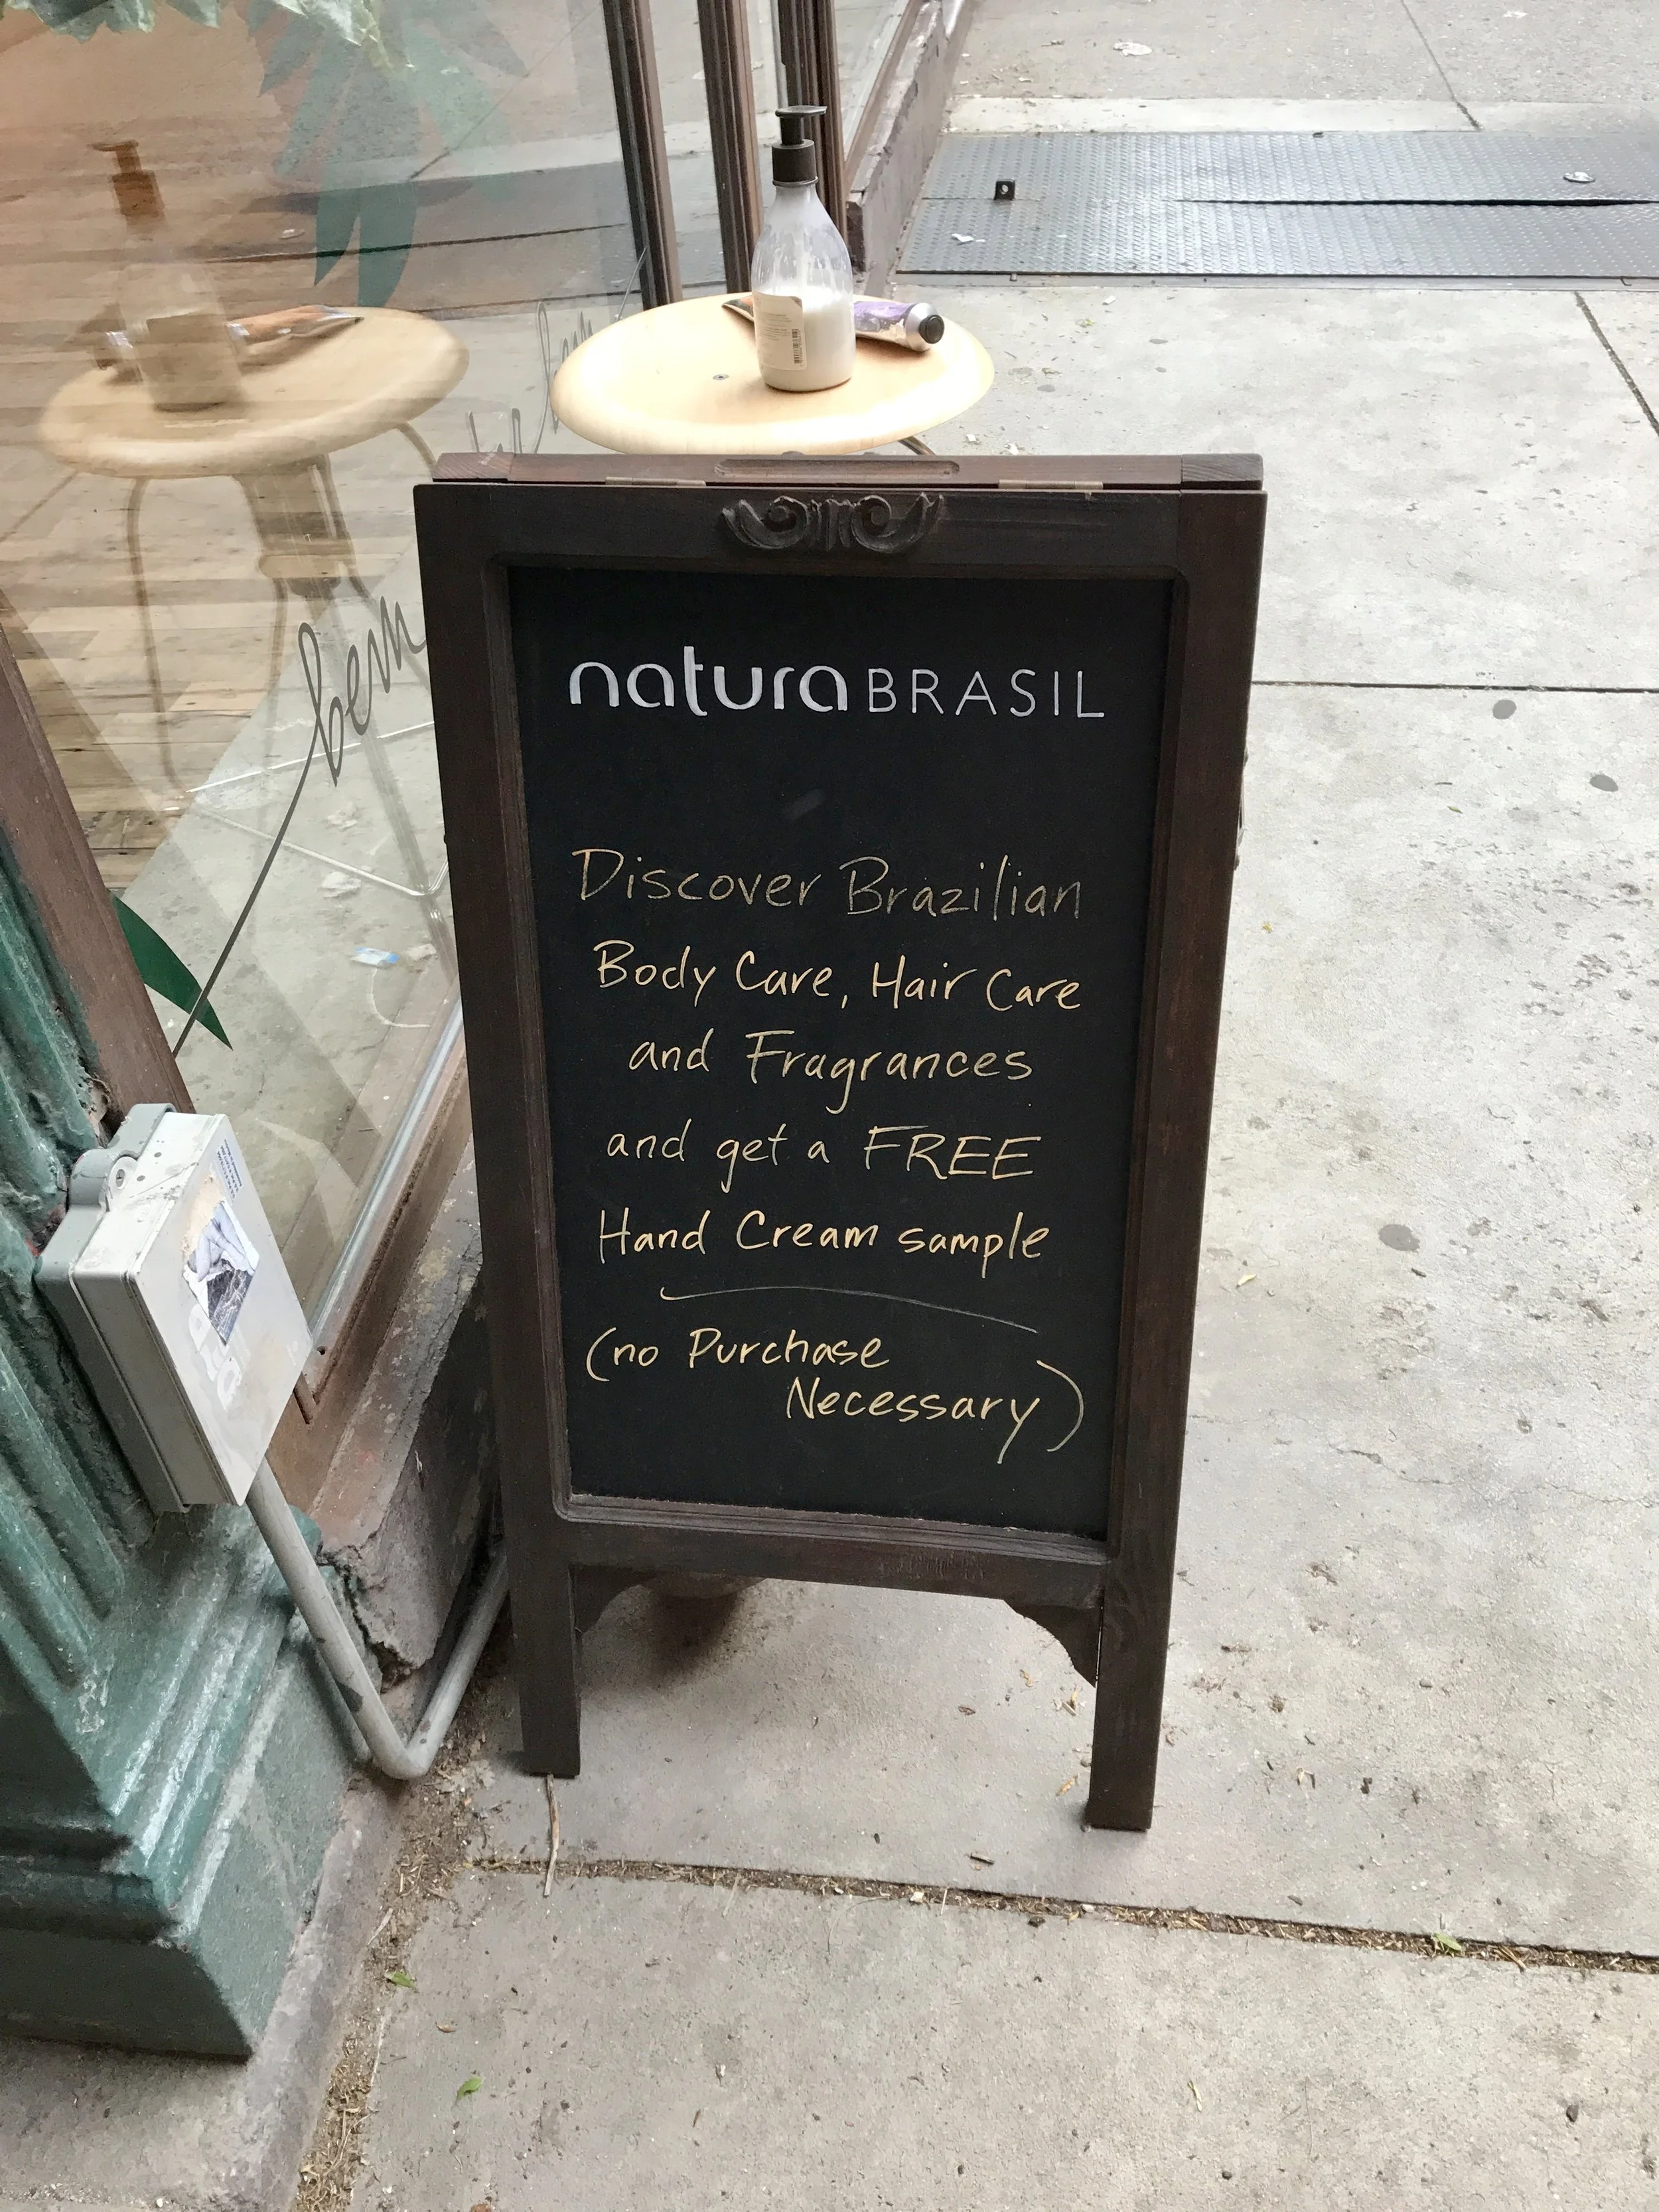 natura BRASIL
Discover Brazilian
Body Care, Hair Care
and Fragrances
and get a FREE
Hand Cream sample
(no Purchase
Necessary)
bem